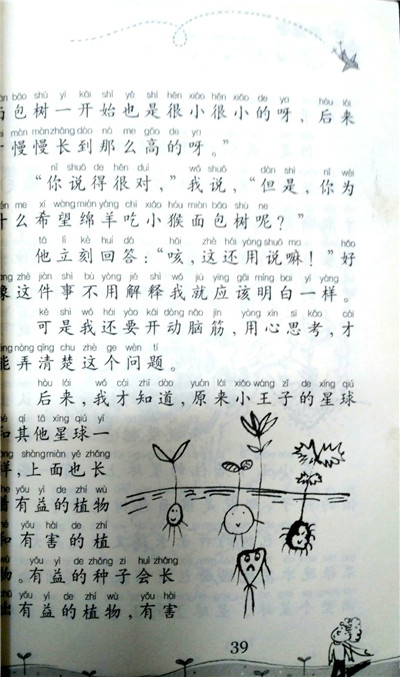 bāo shù yì kāi shǐ yě shì hěn xiǎo hěn xiǎo de ya hòu lái
包树一开始也是很小很小的呀，后来
màn màn zhǎng dào nà me gāo de ya
慢慢长到那么高的呀。”
nǐ shuō de hěn duì wǒ shuō dàn shì nǐ wèi
“你说得很对，”我说，“但是，你为
me xī wàng mián yáng chī xiǎo hóu miàn bāo shù ne
什么希望绵羊吃小猴面包树呢？”
tā lì kè huí dá hāi zhè hái yòng shuō ma hǎo
他立刻回答：“咳，这还用说嘛！”好
zhè jiàn shì bú yòng jiě shì wǒ jiù yīng gāi míng bai yí yàng
像这件事不用解释我就应该明白一样。
kě shì wǒ hái yào kāi dòng nǎo jīn yòng xīn sī kǎo cái
可是我还要开动脑筋，用心思考，才
nòng qīng chu zhè ge wèn tí
能弄清楚这个问题。
hòu lái wǒ cái zhī dào yuán lái xiǎo wáng zǐ de xīng qiú
后来，我才知道，原来小王子的星球
qí tā xīng qiú yí
和其他星球一
shàng miàn yě zhǎng
样，上面也长
yǒu yì de zhí wù
着有益的植物
yǒu hài de zhí
和有害的植
yǒu yì de zhǒng zi huì zhǎng
物。有益的种子会长
yǒu yì de zhí wù yǒu hài
出有益的植物，有害
39